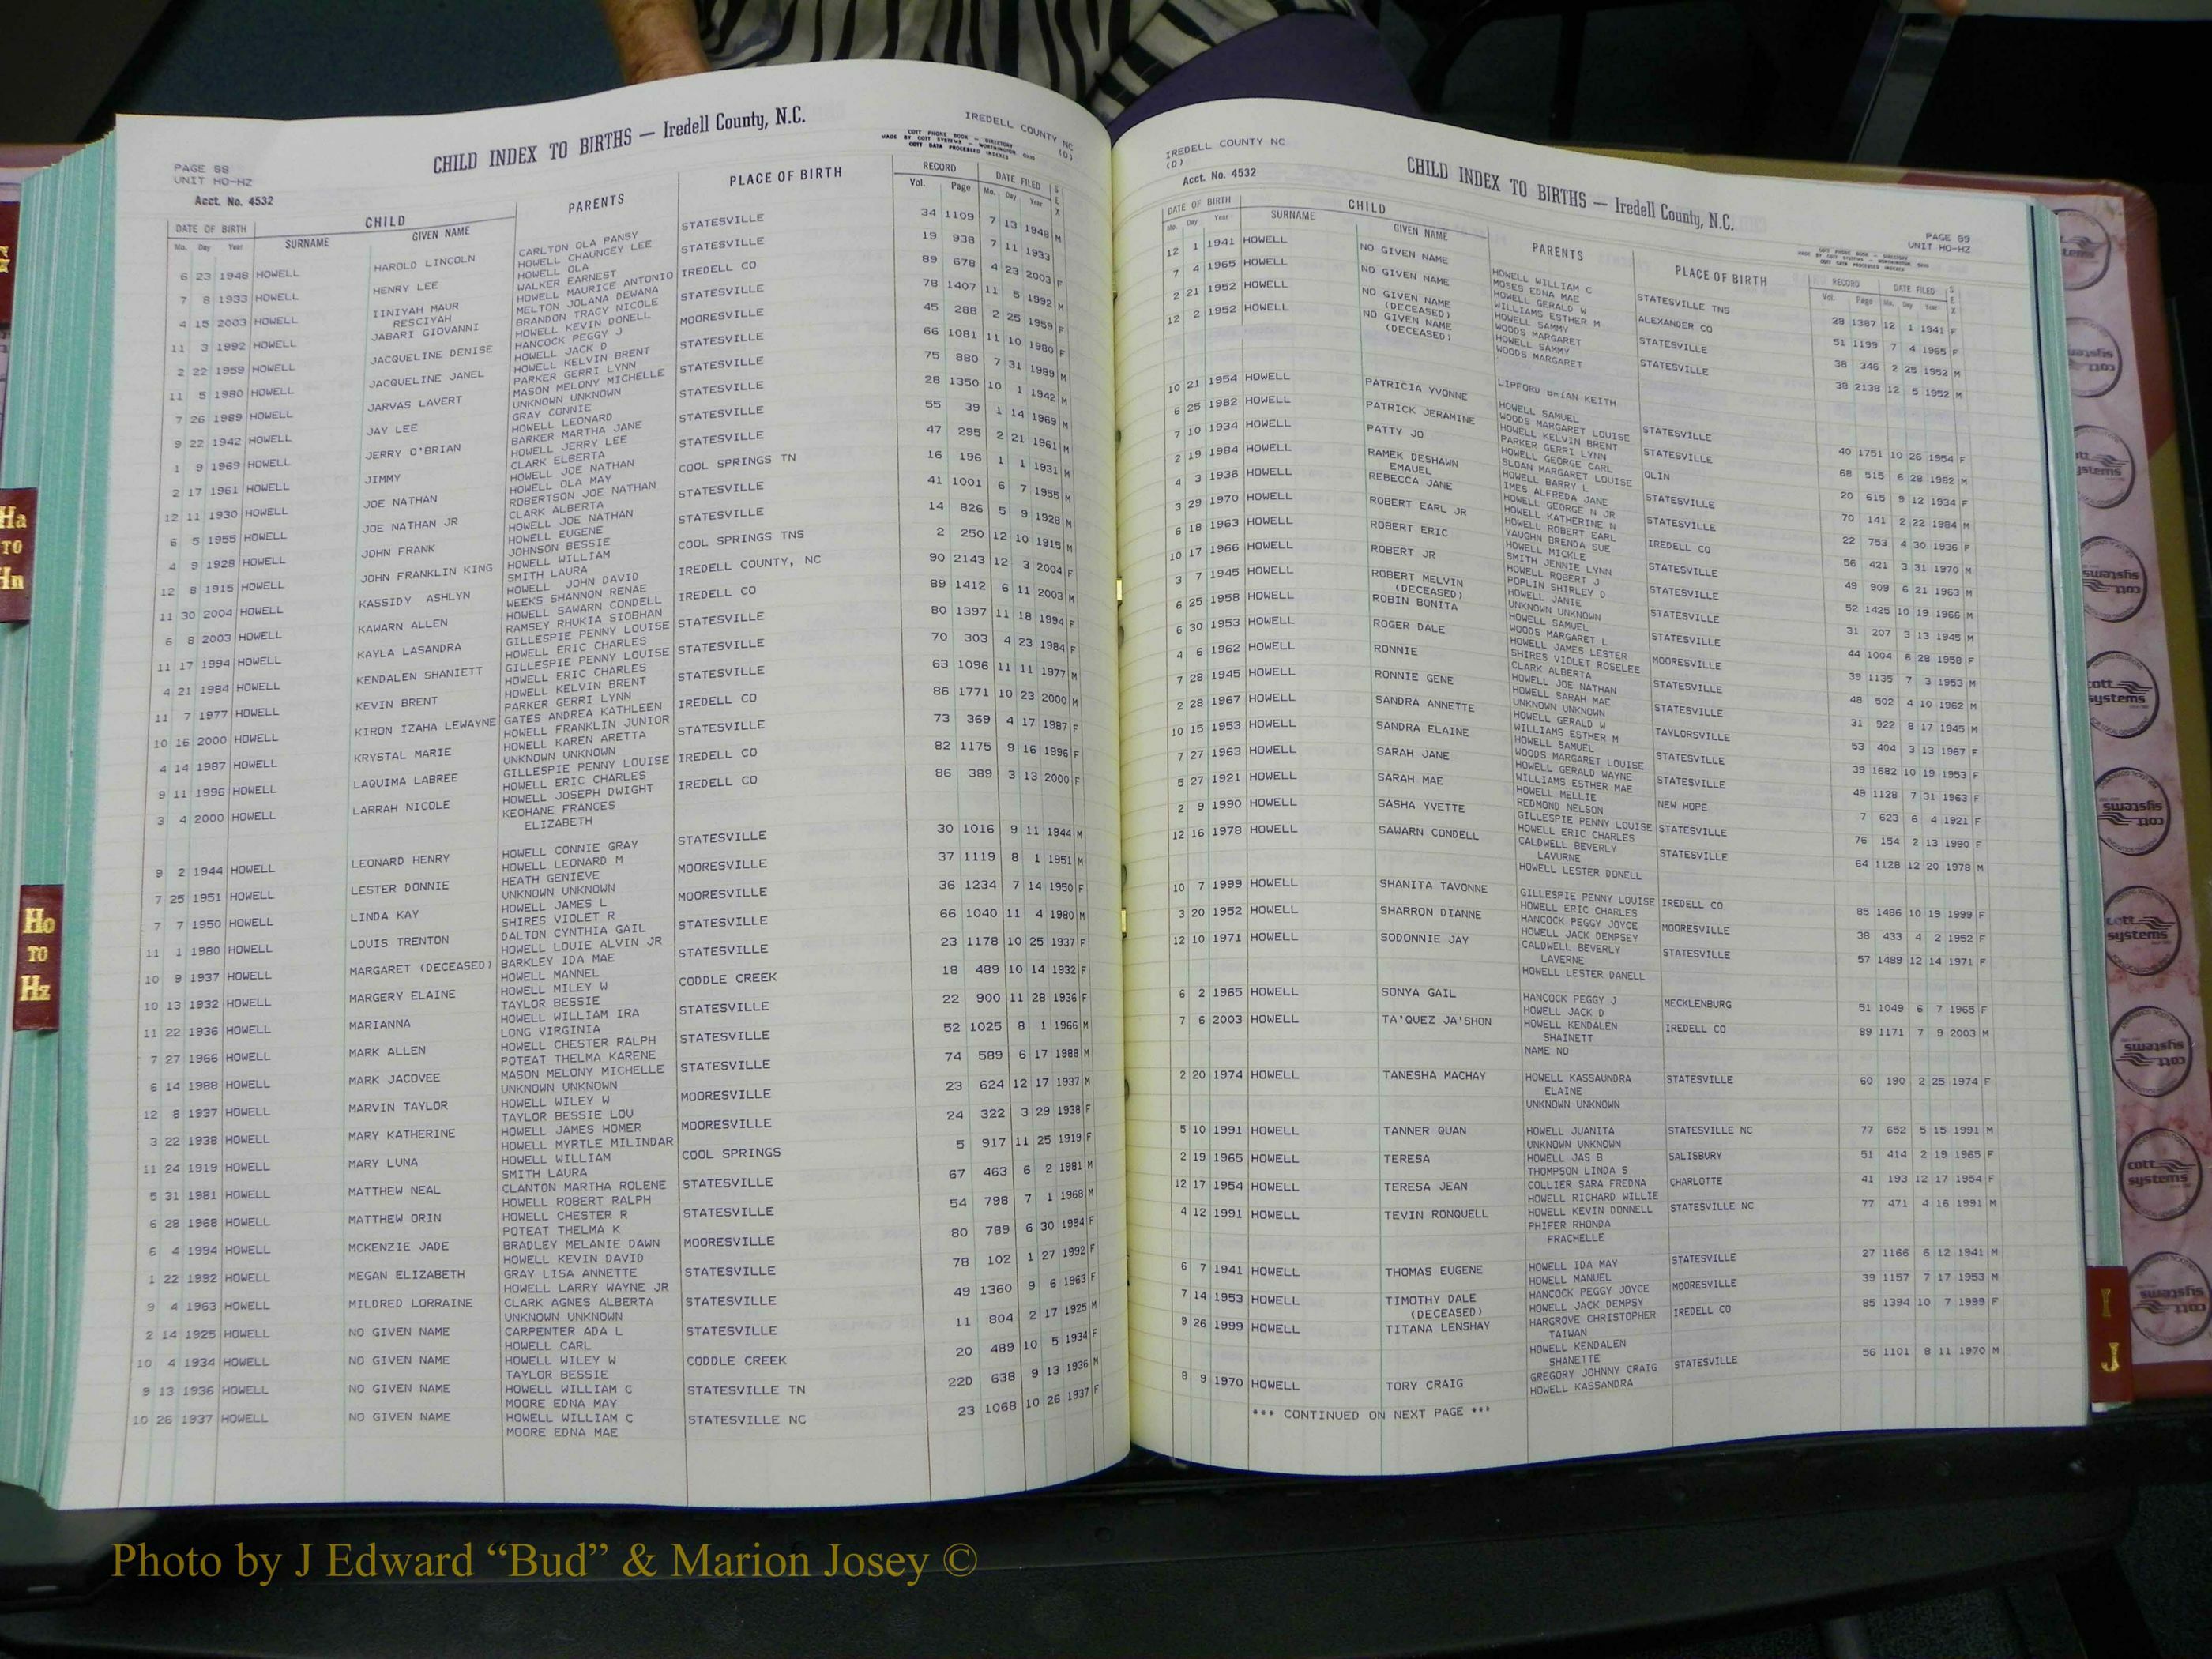 CHILD INDEX TO BIRTHS — Iredell County, N.C.
IREDELL COUNTY NC
(D)
COTT PHONE BOOK - DIRECTORY
MADE BY COTT SYSTEMS - WORTHINGTON, OHIO
COTT DATA PROCESSED INDEXES
PAGE 88
UNIT HO-HZ
Acct. No. 4532
DATE OF BIRTH CHILD PARENTS PLACE OF BIRTH RECORD DATE FILED SEX
Mo. Day Year SURNAME GIVEN NAME Vol. Page Mo. Day Year
6 23 1948 HOWELL HAROLD LINCOLN CARLTON OLA PANSY STATESVILLE 34 1109 7 13 1948 M
HOWELL CHAUNCEY LEE
7 8 1933 HOWELL HENRY LEE HOWELL OLA STATESVILLE 19 938 7 11 1933
WALKER EARNEST
4 15 2003 HOWELL IINIYAH MAUR HOWELL MAURICE ANTONIO IREDELL CO 89 678 4 23 2003 F
RESCIYAH MELTON JOLANA DEWANA
11 3 1992 HOWELL JABARI GIOVANNI BRANDON TRACY NICOLE STATESVILLE 78 1407 11 5 1992 M
HOWELL KEVIN DONELL
2 22 1959 HOWELL JACQUELINE DENISE HANCOCK PEGGY J MOORESVILLE 45 288 2 25 1959 F
HOWELL JACK D
11 5 1980 HOWELL JACQUELINE JANEL HOWELL KELVIN BRENT STATESVILLE 66 1081 11 10 1980 F
PARKER GERRI LYNN
7 26 1989 HOWELL JARVAS LAVERT MASON MELONY MICHELLE STATESVILLE 75 880 7 31 1989 M
UNKNOWN UNKNOWN
9 22 1942 HOWELL JAY LEE GRAY CONNIE STATESVILLE 28 1350 10 1 1942 M
HOWELL LEONARD
1 9 1969 HOWELL JERRY O'BRIAN BARKER MARTHA JANE STATESVILLE 55 39 1 14 1969 M
HOWELL JERRY LEE
2 17 1961 HOWELL JIMMY CLARK ELBERTA STATESVILLE 47 295 2 21 1961 M
HOWELL JOE NATHAN
12 11 1930 HOWELL JOE NATHAN HOWELL OLA MAY COOL SPRINGS TN 16 196 1 1 1931 M
ROBERTSON JOE NATHAN
6 5 1955 HOWELL JOE NATHAN JR CLARK ALBERTA STATESVILLE 41 1001 6 7 1955 M
HOWELL JOE NATHAN
4 9 1928 HOWELL JOHN FRANK HOWELL EUGENE STATESVILLE 14 826 5 9 1928 M
JOHNSON BESSIE
12 8 1915 HOWELL JOHN FRANKLIN KING HOWELL WILLIAM COOL SPRINGS TNS 2 250 12 10 1915 M
SMITH LAURA
11 30 2004 HOWELL KASSIDY ASHLYN HOWELL JOHN DAVID IREDELL COUNTY, NC 90 2143 12 3 2004 F
WEEKS SHANNON RENAE
6 8 2003 HOWELL KAWARN ALLEN HOWELL SAWARN CONDELL IREDELL CO 89 1412 6 11 2003 M
RAMSEY RHUKIA SIOBHAN
11 17 1994 HOWELL KAYLA LASANDRA GILLESPIE PENNY LOUISE STATESVILLE 80 1397 11 18 1994 F
HOWELL ERIC CHARLES
4 21 1984 HOWELL KENDALEN SHANIETT GILLESPIE PENNY LOUISE STATESVILLE 70 303 4 23 1984 F
HOWELL ERIC CHARLES
11 7 1977 HOWELL KEVIN BRENT HOWELL KELVIN BRENT STATESVILLE 63 1096 11 11 1977 M
PARKER GERRI LYNN
10 16 2000 HOWELL KIRON IZAHA LEWAYNE GATES ANDREA KATHLEEN IREDELL CO 86 1771 10 23 2000 M
HOWELL FRANKLIN JUNIOR
4 14 1987 HOWELL KRYSTAL MARIE HOWELL KAREN ARETTA STATESVILLE 73 369 4 17 1987 F
UNKNOWN UNKNOWN
9 11 1996 HOWELL LAQUIMA LABREE GILLESPIE PENNY LOUISE IREDELL CO 82 1175 9 16 1996 F
HOWELL ERIC CHARLES
3 4 2000 HOWELL LARRAH NICOLE HOWELL JOSEPH DWIGHT IREDELL CO 86 389 3 13 2000 F
KEOHANE FRANCES
ELIZABETH
9 2 1944 HOWELL LEONARD HENRY HOWELL CONNIE GRAY STATESVILLE 30 1016 9 11 1944 M
HOWELL LEONARD M
7 25 1951 HOWELL LESTER DONNIE HEATH GENIEVE MOORESVILLE 37 1119 8 1 1951 M
UNKNOWN UNKNOWN
7 7 1950 HOWELL LINDA KAY HOWELL JAMES L MOORESVILLE 36 1234 7 14 1950 F
SHIRES VIOLET R
11 1 1980 HOWELL LOUIS TRENTON DALTON CYNTHIA GAIL STATESVILLE 66 1040 11 4 1980 M
HOWELL LOUIE ALVIN JR
10 9 1937 HOWELL MARGARET (DECEASED) BARKLEY IDA MAE STATESVILLE 23 1178 10 25 1937 F
HOWELL MANNEL
10 13 1932 HOWELL MARGERY ELAINE HOWELL MILEY W CODDLE CREEK 18 489 10 14 1932 F
TAYLOR BESSIE
11 22 1936 HOWELL MARIANNA HOWELL WILLIAM IRA STATESVILLE 22 900 11 28 1936 F
LONG VIRGINIA
7 27 1966 HOWELL MARK ALLEN HOWELL CHESTER RALPH STATESVILLE 52 1025 8 1 1966 M
POTEAT THELMA KARENE
6 14 1988 HOWELL MARK JACOVEE MASON MELONY MICHELLE STATESVILLE 74 589 6 17 1988 M
UNKNOWN UNKNOWN
12 8 1937 HOWELL MARVIN TAYLOR HOWELL WILEY W MOORESVILLE 23 624 12 17 1937 M
TAYLOR BESSIE LOU
3 22 1938 HOWELL MARY KATHERINE HOWELL JAMES HOMER MOORESVILLE 24 322 3 29 1938 F
HOWELL MYRTLE MILINDAR
11 24 1919 HOWELL MARY LUNA HOWELL WILLIAM COOL SPRINGS 5 917 11 25 1919 F
SMITH LAURA
5 31 1981 HOWELL MATTHEW NEAL CLANTON MARTHA ROLENE STATESVILLE 67 463 6 2 1981 M
HOWELL ROBERT RALPH
6 28 1968 HOWELL MATTHEW ORIN HOWELL CHESTER R STATESVILLE 54 798 7 1 1968 M
POTEAT THELMA K
6 4 1994 HOWELL MCKENZIE JADE BRADLEY MELANIE DAWN MOORESVILLE 80 789 6 30 1994 F
HOWELL KEVIN DAVID
1 22 1992 HOWELL MEGAN ELIZABETH GRAY LISA ANNETTE STATESVILLE 78 102 1 27 1992 F
HOWELL LARRY WAYNE JR
9 4 1963 HOWELL MILDRED LORRAINE CLARK AGNES ALBERTA STATESVILLE 49 1360 9 6 1963 F
UNKNOWN UNKNOWN
2 14 1925 HOWELL NO GIVEN NAME CARPENTER ADA L STATESVILLE 11 804 2 17 1925 M
HOWELL CARL
10 4 1934 HOWELL NO GIVEN NAME HOWELL WILEY W CODDLE CREEK 20 489 10 5 1934 F
TAYLOR BESSIE
9 13 1936 HOWELL NO GIVEN NAME HOWELL WILLIAM C STATESVILLE TN 22D 638 9 13 1936 M
MOORE EDNA MAY
10 26 1937 HOWELL NO GIVEN NAME HOWELL WILLIAM C STATESVILLE NC 23 1068 10 26 1937 F
MOORE EDNA MAE
IREDELL COUNTY NC
(D)
Acct. No. 4532
CHILD INDEX TO BIRTHS — Iredell County, N.C.
PAGE 89
UNIT HO-HZ
COTT PHONE BOOK - DIRECTORY
MADE BY COTT SYSTEMS - WORTHINGTON, OHIO
COTT DATA PROCESSED INDEXES
DATE OF BIRTH CHILD PARENTS PLACE OF BIRTH RECORD DATE FILED SEX
Mo. Day Year SURNAME GIVEN NAME Vol. Page Mo. Day Year
12 1 1941 HOWELL NO GIVEN NAME HOWELL WILLIAM C STATESVILLE TNS 28 1387 12 1 1941 F
MOSES EDNA MAE
7 4 1965 HOWELL NO GIVEN NAME HOWELL GERALD W ALEXANDER CO 51 1199 7 4 1965 F
WILLIAMS ESTHER M
2 21 1952 HOWELL NO GIVEN NAME HOWELL SAMMY STATESVILLE 38 346 2 25 1952 M
(DECEASED) WOODS MARGARET
12 2 1952 HOWELL NO GIVEN NAME HOWELL SAMMY STATESVILLE 38 2138 12 5 1952 M
(DECEASED) WOODS MARGARET
LIPFORD BRIAN KEITH
10 21 1954 HOWELL PATRICIA YVONNE HOWELL SAMUEL STATESVILLE 40 1751 10 26 1954 F
WOODS MARGARET LOUISE
6 25 1982 HOWELL PATRICK JERAMINE HOWELL KELVIN BRENT STATESVILLE 68 515 6 28 1982 M
PARKER GERRI LYNN
7 10 1934 HOWELL PATTY JO HOWELL GEORGE CARL OLIN 20 615 9 12 1934 F
SLOAN MARGARET LOUISE
2 19 1984 HOWELL RAMEK DESHAWN HOWELL BARRY L STATESVILLE 70 141 2 22 1984 M
EMAUEL IMES ALFREDA JANE
4 3 1936 HOWELL REBECCA JANE HOWELL GEORGE N JR STATESVILLE 22 753 4 30 1936 F
HOWELL KATHERINE N
3 29 1970 HOWELL ROBERT EARL JR HOWELL ROBERT EARL IREDELL CO 56 421 3 31 1970 M
VAUGHN BRENDA SUE
6 18 1963 HOWELL ROBERT ERIC HOWELL MICKLE STATESVILLE 49 909 6 21 1963 M
SMITH JENNIE LYNN
10 17 1966 HOWELL ROBERT JR HOWELL ROBERT J STATESVILLE 52 1425 10 19 1966 M
POPLIN SHIRLEY D
3 7 1945 HOWELL ROBERT MELVIN HOWELL JANIE STATESVILLE 31 207 3 13 1945 M
(DECEASED) UNKNOWN UNKNOWN
6 25 1958 HOWELL ROBIN BONITA HOWELL SAMUEL STATESVILLE 44 1004 6 28 1958 F
WOODS MARGARET L
6 30 1953 HOWELL ROGER DALE HOWELL JAMES LESTER MOORESVILLE 39 1135 7 3 1953 M
SHIRES VIOLET ROSELEE
4 6 1962 HOWELL RONNIE CLARK ALBERTA STATESVILLE 48 502 4 10 1962 M
HOWELL JOE NATHAN
7 28 1945 HOWELL RONNIE GENE HOWELL SARAH MAE STATESVILLE 31 922 8 17 1945 M
UNKNOWN UNKNOWN
2 28 1967 HOWELL SANDRA ANNETTE HOWELL GERALD W TAYLORSVILLE 53 404 3 13 1967 F
WILLIAMS ESTHER M
10 15 1953 HOWELL SANDRA ELAINE HOWELL SAMUEL STATESVILLE 39 1682 10 19 1953 F
WOODS MARGARET LOUISE
7 27 1963 HOWELL SARAH JANE HOWELL GERALD WAYNE STATESVILLE 49 1128 7 31 1963 F
WILLIAMS ESTHER MAE
5 27 1921 HOWELL SARAH MAE HOWELL MELLIE NEW HOPE 7 623 6 4 1921 F
REDMOND NELSON
2 9 1990 HOWELL SASHA YVETTE GILLESPIE PENNY LOUISE STATESVILLE 76 154 2 13 1990 F
HOWELL ERIC CHARLES
12 16 1978 HOWELL SAWARN CONDELL CALDWELL BEVERLY STATESVILLE 64 1128 12 20 1978 M
LAVURNE
HOWELL LESTER DONELL
10 7 1999 HOWELL SHANITA TAVONNE GILLESPIE PENNY LOUISE IREDELL CO 85 1486 10 19 1999 F
HOWELL ERIC CHARLES
3 20 1952 HOWELL SHARRON DIANNE HANCOCK PEGGY JOYCE MOORESVILLE 38 433 4 2 1952 F
HOWELL JACK DEMPSEY
12 10 1971 HOWELL SODONNIE JAY CALDWELL BEVERLY STATESVILLE 57 1489 12 14 1971 F
LAVERNE
HOWELL LESTER DANELL
6 2 1965 HOWELL SONYA GAIL HANCOCK PEGGY J MECKLENBURG 51 1049 6 7 1965 F
HOWELL JACK D
7 6 2003 HOWELL TA'QUEZ JA'SHON HOWELL KENDALEN IREDELL CO 89 1171 7 9 2003 M
SHAINETT
NAME NO
2 20 1974 HOWELL TANESHA MACHAY HOWELL KASSAUNDRA STATESVILLE 60 190 2 25 1974 F
ELAINE
UNKNOWN UNKNOWN
5 10 1991 HOWELL TANNER QUAN HOWELL JUANITA STATESVILLE NC 77 652 5 15 1991 M
UNKNOWN UNKNOWN
2 19 1965 HOWELL TERESA HOWELL JAS B SALISBURY 51 414 2 19 1965 F
THOMPSON LINDA S
12 17 1954 HOWELL TERESA JEAN COLLIER SARA FREDNA CHARLOTTE 41 193 12 17 1954 F
HOWELL RICHARD WILLIE
4 12 1991 HOWELL TEVIN RONQUELL HOWELL KEVIN DONNELL STATESVILLE NC 77 471 4 16 1991 M
PHIFER RHONDA
FRACHELLE
6 7 1941 HOWELL THOMAS EUGENE HOWELL IDA MAY STATESVILLE 27 1166 6 12 1941 M
HOWELL MANUEL
7 14 1953 HOWELL TIMOTHY DALE HANCOCK PEGGY JOYCE MOORESVILLE 39 1157 7 17 1953 M
(DECEASED) HOWELL JACK DEMPSY
9 26 1999 HOWELL TITANA LENSHAY HARGROVE CHRISTOPHER IREDELL CO 85 1394 10 7 1999 F
TAIWAN
HOWELL KENDALEN
SHANETTE
8 9 1970 HOWELL TORY CRAIG GREGORY JOHNNY CRAIG STATESVILLE 56 1101 8 11 1970 M
HOWELL KASSANDRA
*** CONTINUED ON NEXT PAGE ***
Ha
TO
Hn
Ho
TO
Hz
I
J
cott
systems
Photo by J Edward “Bud” & Marion Josey ©